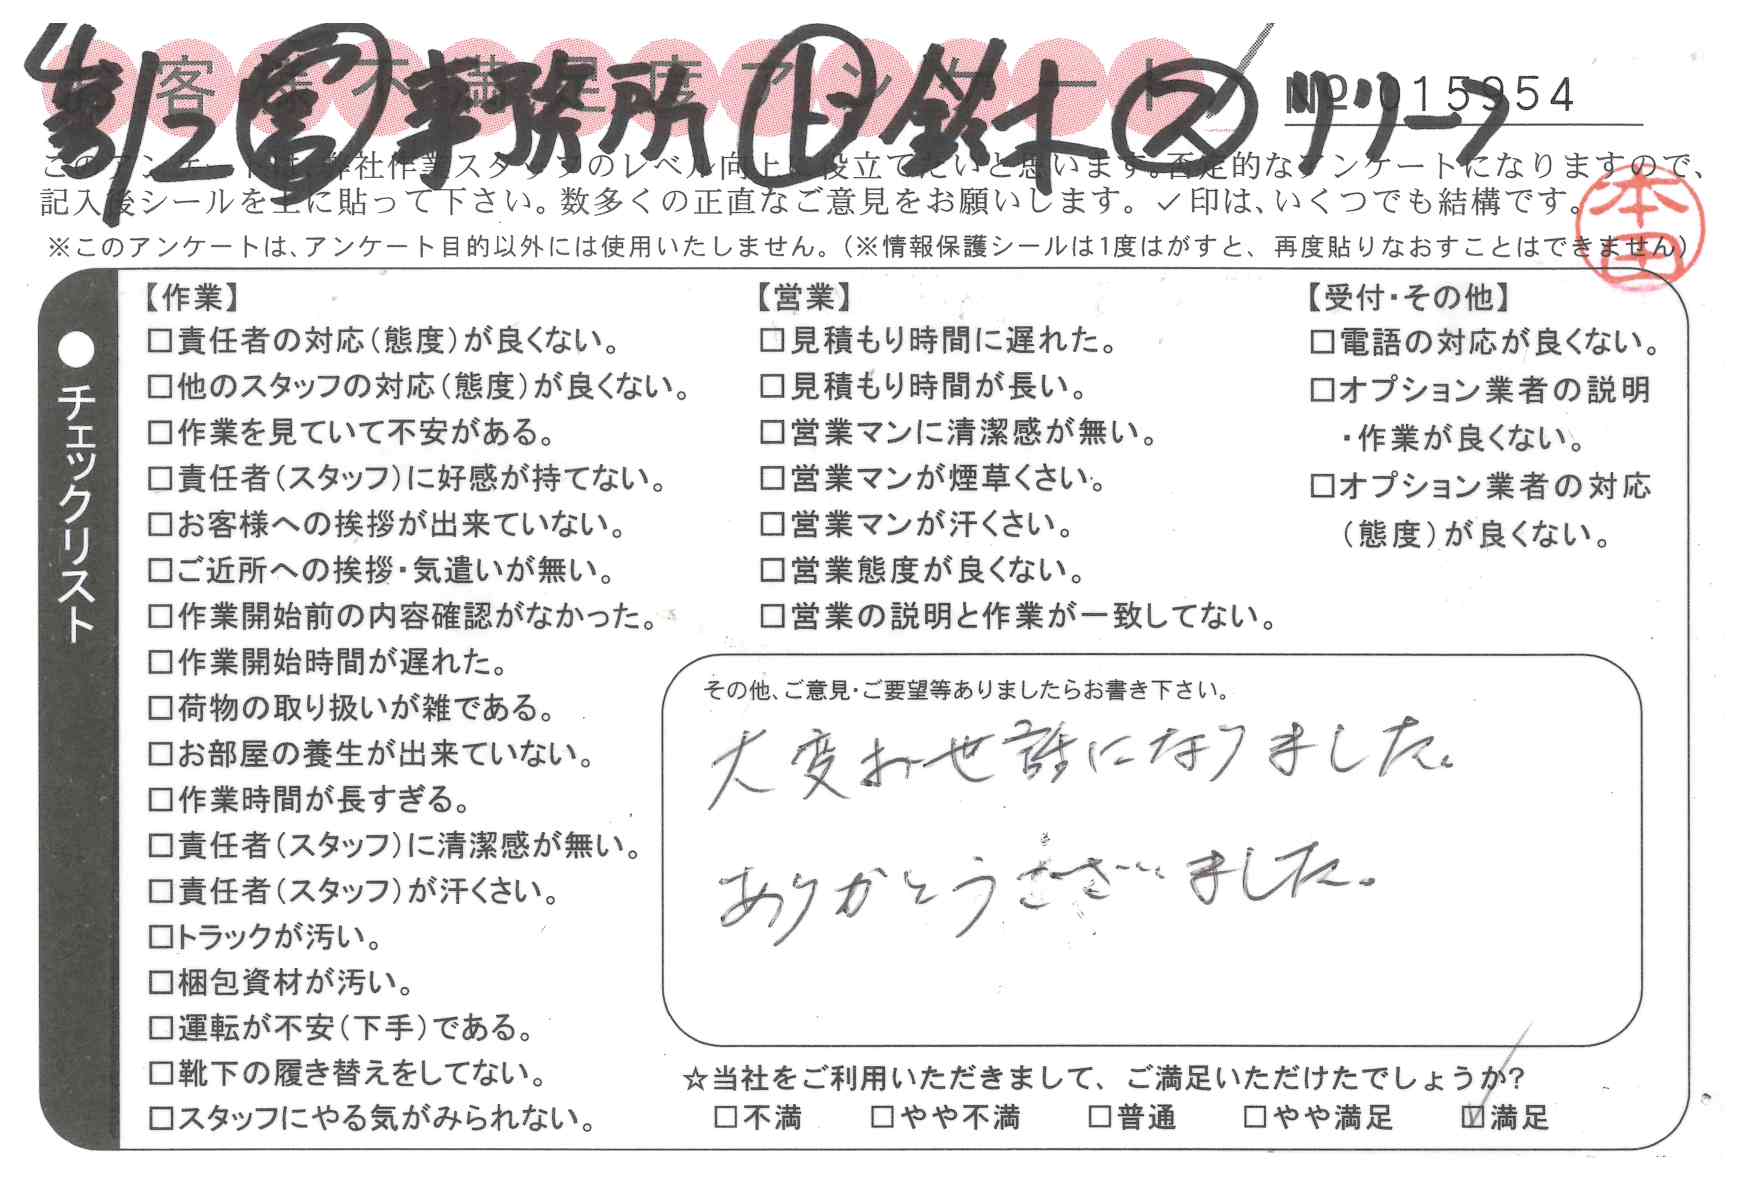 お客様不満足度アンケート
事務所 上 鈴木 ス リリーフ
№ 015954
このアンケートは、弊社作業スタッフのレベル向上に役立てたいと思います。否定的なアンケートになりますので、
記入後シールを上に貼って下さい。数多くの正直なご意見をお願いします。✓印は、いくつでも結構です。
※このアンケートは、アンケート目的以外には使用いたしません。（※情報保護シールは1度はがすと、再度貼りなおすことはできません）
本田
●チェックリスト
【作業】
□責任者の対応（態度）が良くない。
□他のスタッフの対応（態度）が良くない。
□作業を見ていて不安がある。
□責任者（スタッフ）に好感が持てない。
□お客様への挨拶が出来ていない。
□ご近所への挨拶・気遣いが無い。
□作業開始前の内容確認がなかった。
□作業開始時間が遅れた。
□荷物の取り扱いが雑である。
□お部屋の養生が出来ていない。
□作業時間が長すぎる。
□責任者（スタッフ）に清潔感が無い。
□責任者（スタッフ）が汗くさい。
□トラックが汚い。
□梱包資材が汚い。
□運転が不安（下手）である。
□靴下の履き替えをしてない。
□スタッフにやる気がみられない。
【営業】
□見積もり時間に遅れた。
□見積もり時間が長い。
□営業マンに清潔感が無い。
□営業マンが煙草くさい。
□営業マンが汗くさい。
□営業態度が良くない。
□営業の説明と作業が一致してない。
【受付・その他】
□電話の対応が良くない。
□オプション業者の説明
・作業が良くない。
□オプション業者の対応
（態度）が良くない。
その他、ご意見・ご要望等ありましたらお書き下さい。
大変お世話になりました。
ありがとうございました。
☆当社をご利用いただきまして、ご満足いただけたでしょうか？
□不満 □やや不満 □普通 □やや満足 ☑満足